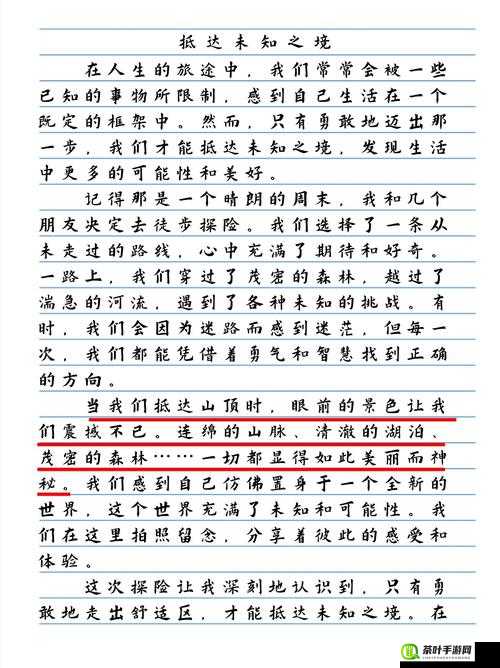 抵达未知之境
在人生的旅途中，我们常常会被一些
已知的事物所限制，感到自己生活在一个
既定的框架中。然而，只有勇敢地迈出那
一步，我们才能抵达未知之境，发现生活
中更多的可能性和美好。
记得那是一个晴朗的周末，我和几个
朋友决定去徒步探险。我们选择了一条从
未走过的路线，心中充满了期待和好奇。
一路上，我们穿过了茂密的森林，越过了
湍急的河流，遇到了各种未知的挑战。有
时，我们会因为迷路而感到迷茫，但每一
次，我们都能凭借着勇气和智慧找到正确
的方向。
当我们抵达山顶时，眼前的景色让我
们震撼不已。连绵的山脉、清澈的湖泊、
茂密的森林……一切都显得如此美丽而神
秘。我们感到自己仿佛置身于一个全新的
世界，这个世界充满了未知和可能性。我
们在这里拍照留念，分享着彼此的感受和
体验。
这次探险让我深刻地认识到，只有勇
敢地走出舒适区，才能抵达未知之境。在
茶叶手游网